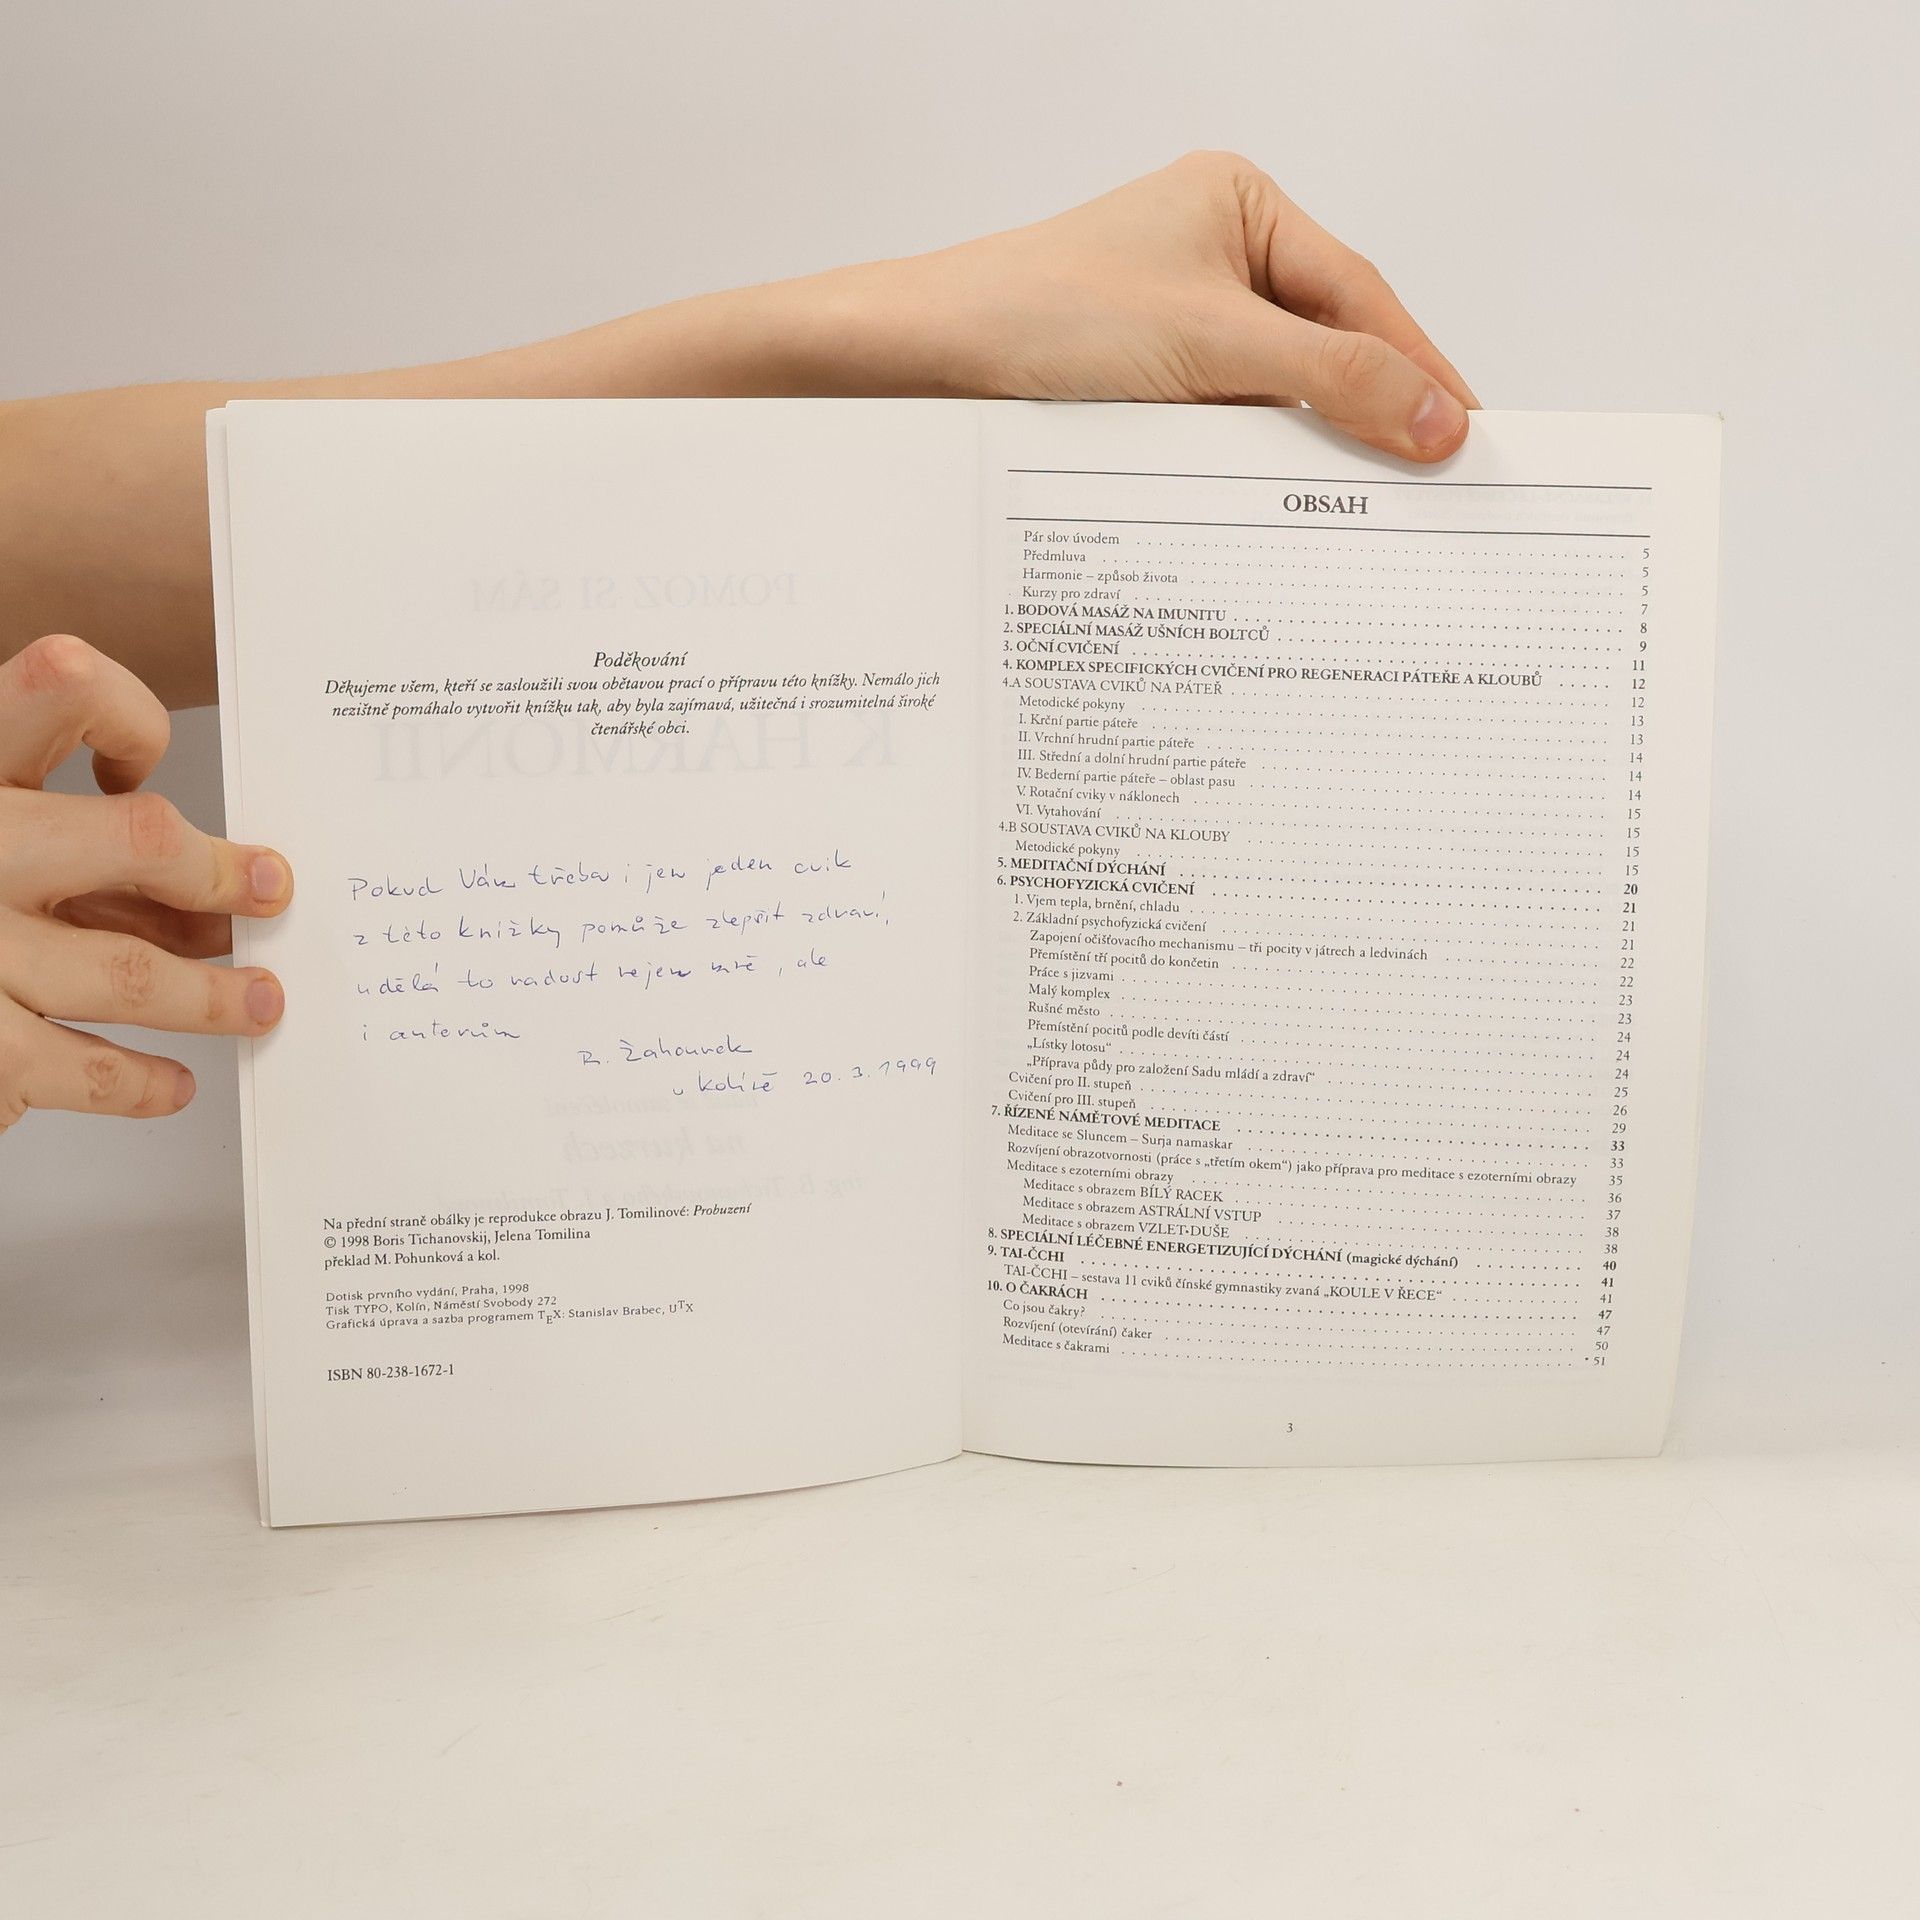 Poděkování
Děkujeme všem, kteří se zasloužili svou obětavou prací o přípravu této knížky. Nemálo jich
nezištně pomáhalo vytvořit knížku tak, aby byla zajímavá, užitečná i srozumitelná široké
čtenářské obci.
Pokud Vám třeba i jen jeden cvik
z této knížky pomůže zlepšit zdraví,
udělá to radost nejen mně, ale
i autorům
R. Žahourek
v Kolíně 20.3.1999
Na přední straně obálky je reprodukce obrazu J. Tomilinové: Probuzení
© 1998 Boris Tichanovskij, Jelena Tomilina
překlad M. Pohunková a kol.
Dotisk prvního vydání, Praha, 1998
Tisk TYPO, Kolín, Náměstí Svobody 272
Grafická úprava a sazba programem TEX: Stanislav Brabec, UTX
ISBN 80-238-1672-1
OBSAH
Pár slov úvodem . . . 5
Předmluva . . . 5
Harmonie – způsob života . . . 5
Kurzy pro zdraví . . . 7
1. BODOVÁ MASÁŽ NA IMUNITU . . . 8
2. SPECIÁLNÍ MASÁŽ UŠNÍCH BOLTCŮ . . . 9
3. OČNÍ CVIČENÍ . . . 11
4. KOMPLEX SPECIFICKÝCH CVIČENÍ PRO REGENERACI PÁTEŘE A KLOUBŮ . . . 12
4.A SOUSTAVA CVIKŮ NA PÁTEŘ . . . 12
Metodické pokyny . . . 13
I. Krční partie páteře . . . 13
II. Vrchní hrudní partie páteře . . . 14
III. Střední a dolní hrudní partie páteře . . . 14
IV. Bederní partie páteře – oblast pasu . . . 14
V. Rotační cviky v náklonech . . . 15
VI. Vytahování . . . 15
4.B SOUSTAVA CVIKŮ NA KLOUBY . . . 15
Metodické pokyny . . . 15
5. MEDITAČNÍ DÝCHÁNÍ . . . 20
6. PSYCHOFYZICKÁ CVIČENÍ . . . 21
1. Vjem tepla, brnění, chladu . . . 21
2. Základní psychofyzická cvičení . . . 21
Zapojení očišťovacího mechanismu – tři pocity v játrech a ledvinách . . . 22
Přemístění tří pocitů do končetin . . . 22
Práce s jizvami . . . 23
Malý komplex . . . 23
Rušné město . . . 24
Přemístění pocitů podle devíti částí . . . 24
„Lístky lotosu“ . . . 24
„Příprava půdy pro založení Sadu mládí a zdraví“ . . . 25
Cvičení pro II. stupeň . . . 26
Cvičení pro III. stupeň . . . 29
7. ŘÍZENÉ NÁMĚTOVÉ MEDITACE . . . 33
Meditace se Sluncem – Surja namaskar . . . 33
Rozvíjení obrazotvornosti (práce s „třetím okem“) jako příprava pro meditace s ezoterními obrazy . . . 35
Meditace s ezoterními obrazy . . . 36
Meditace s obrazem BÍLÝ RACEK . . . 37
Meditace s obrazem ASTRÁLNÍ VSTUP . . . 38
Meditace s obrazem VZLET DUŠE . . . 38
8. SPECIÁLNÍ LÉČEBNÉ ENERGETIZUJÍCÍ DÝCHÁNÍ (magické dýchání) . . . 40
9. TAI-ČCHI . . . 41
TAI-ČCHI – sestava 11 cviků čínské gymnastiky zvaná „KOULE V ŘECE“ . . . 41
10. O ČAKRÁCH . . . 47
Co jsou čakry? . . . 47
Rozvíjení (otevírání) čaker . . . 50
Meditace s čakrami . . . 51
3